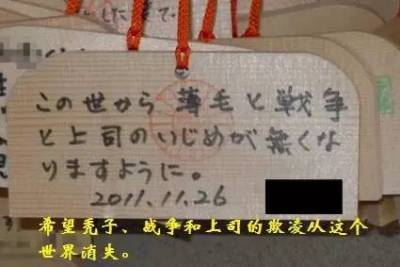 この世から薄毛と戦争
と上司のいじめが無くな
りますように。
2011.11.26
希望秃子、战争和上司的欺凌从这个
世界消失。